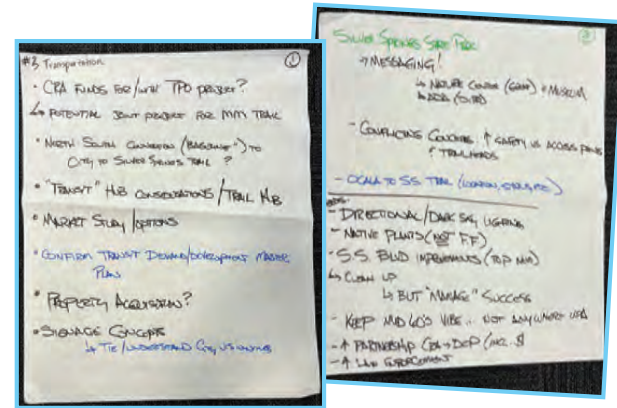 #3 Transportation
①
• CRA FUNDS FOR/WITH TPO PROJECT?
↳ POTENTIAL JOINT PROJECT FOR MM TRAIL
• NORTH SOUTH CONNECTION ("BASELINE") TO
CITY TO SILVER SPRINGS TRAIL ?
• "TRANSIT" HUB CONSIDERATIONS/TRAIL HUB
• MARKET STUDY/OPTIONS
• CONFIRM TRANSIT DEMAND/DEVELOPMENT MASTER
PLAN
• PROPERTY ACQUISITION?
• SIGNAGE CONCEPTS
↳ TIE/UNDERSTAND CITY VS
②
SILVER SPRINGS STATE PARK
→ MESSAGING!
↳ NATURE CENTER + MUSEUM
- CONFLICTING CONCERNS: ↑ SAFETY VS ACCESS POINTS
↑ TRAILHEADS
- OCALA TO S.S. TRAIL (LOCATION,
- DIRECTIONAL/DARK SKY LIGHTING
- NATIVE PLANTS (NOT F.F.)
- S.S. BLVD IMPROVEMENTS (TOP
↳ CLEAN UP
↳ BUT "MANAGE" SUCCESS
- KEEP MID 60'S VIBE.. NOT ANYWHERE USA
- ↑ PARTNERSHIP CRA → DEP (INC. $)
- ↑ LAW ENFORCEMENT